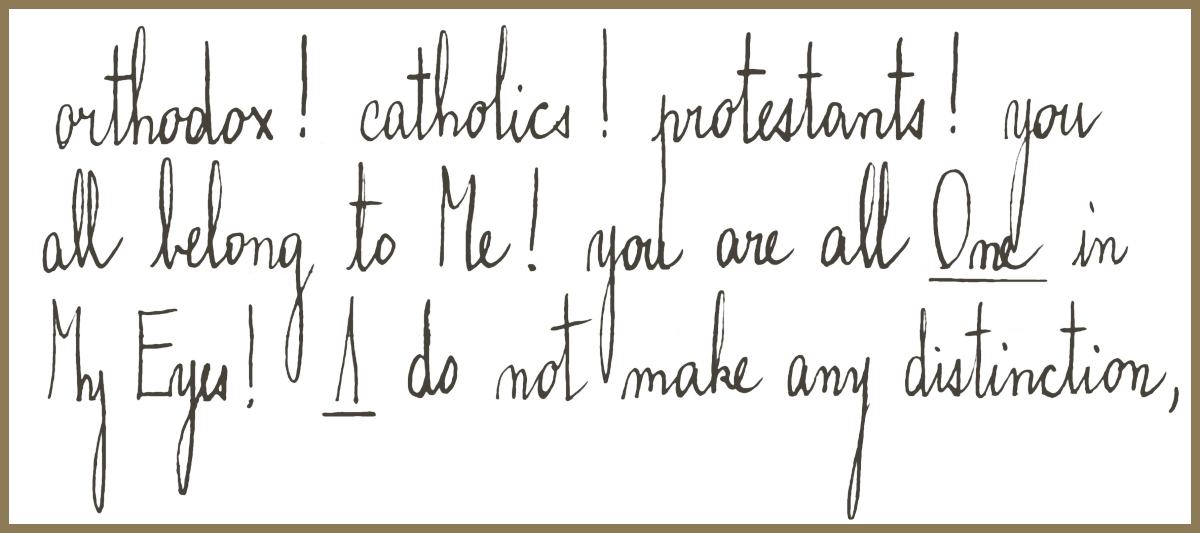 orthodox! catholics! protestants! you
all belong to Me! you are all One in
My Eyes! I do not make any distinction,